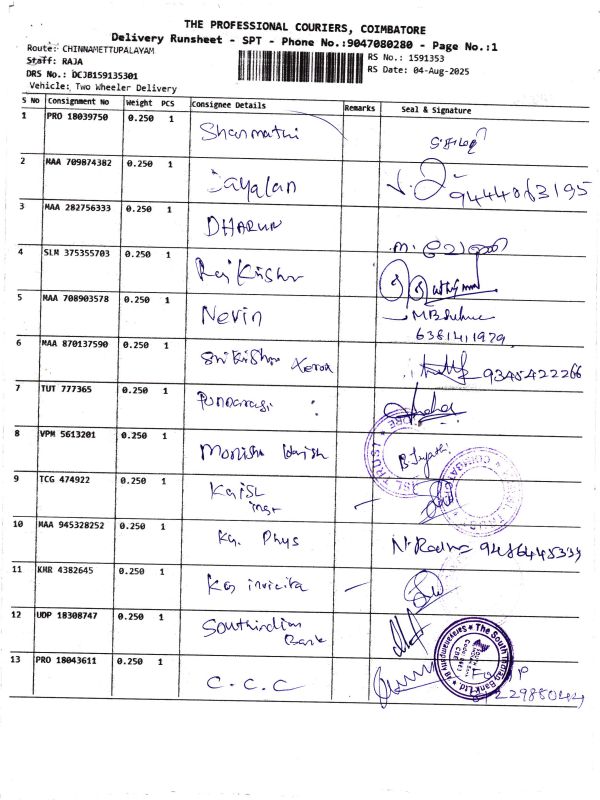 THE PROFESSIONAL COURIERS, COIMBATORE
Delivery Runsheet - SPT - Phone No.:9047080280 - Page No.:1
Route: CHINNAMETTUPALAYAM
Staff: RAJA
DRS No.: DCJB159135301
Vehicle: Two Wheeler Delivery
RS No.: 1591353
RS Date: 04-Aug-2025
S No Consignment No Weight PCS Consignee Details Remarks Seal & Signature
1 PRO 18039750 0.250 1 Sharmathi
2 MAA 709874382 0.250 1 Jayalan 9444063195
3 MAA 282756333 0.250 1 DHARUN
4 SLM 375355703 0.250 1 Raj Kishor
5 MAA 708903578 0.250 1 Nevin
6381411979
6 MAA 870137590 0.250 1 Sri Kishor Xerox 9345422266
7 TUT 777365 0.250 1
8 VPM 5613201 0.250 1 Monisha B. Jeyathi
9 TCG 474922 0.250 1
10 MAA 945328252 0.250 1 KG. Phys N. Radha
11 KHR 4382645 0.250 1
12 UDP 18308747 0.250 1 Southindian
Bank
The South Indian Bank Ltd.
13 PRO 18043611 0.250 1 C.C.C